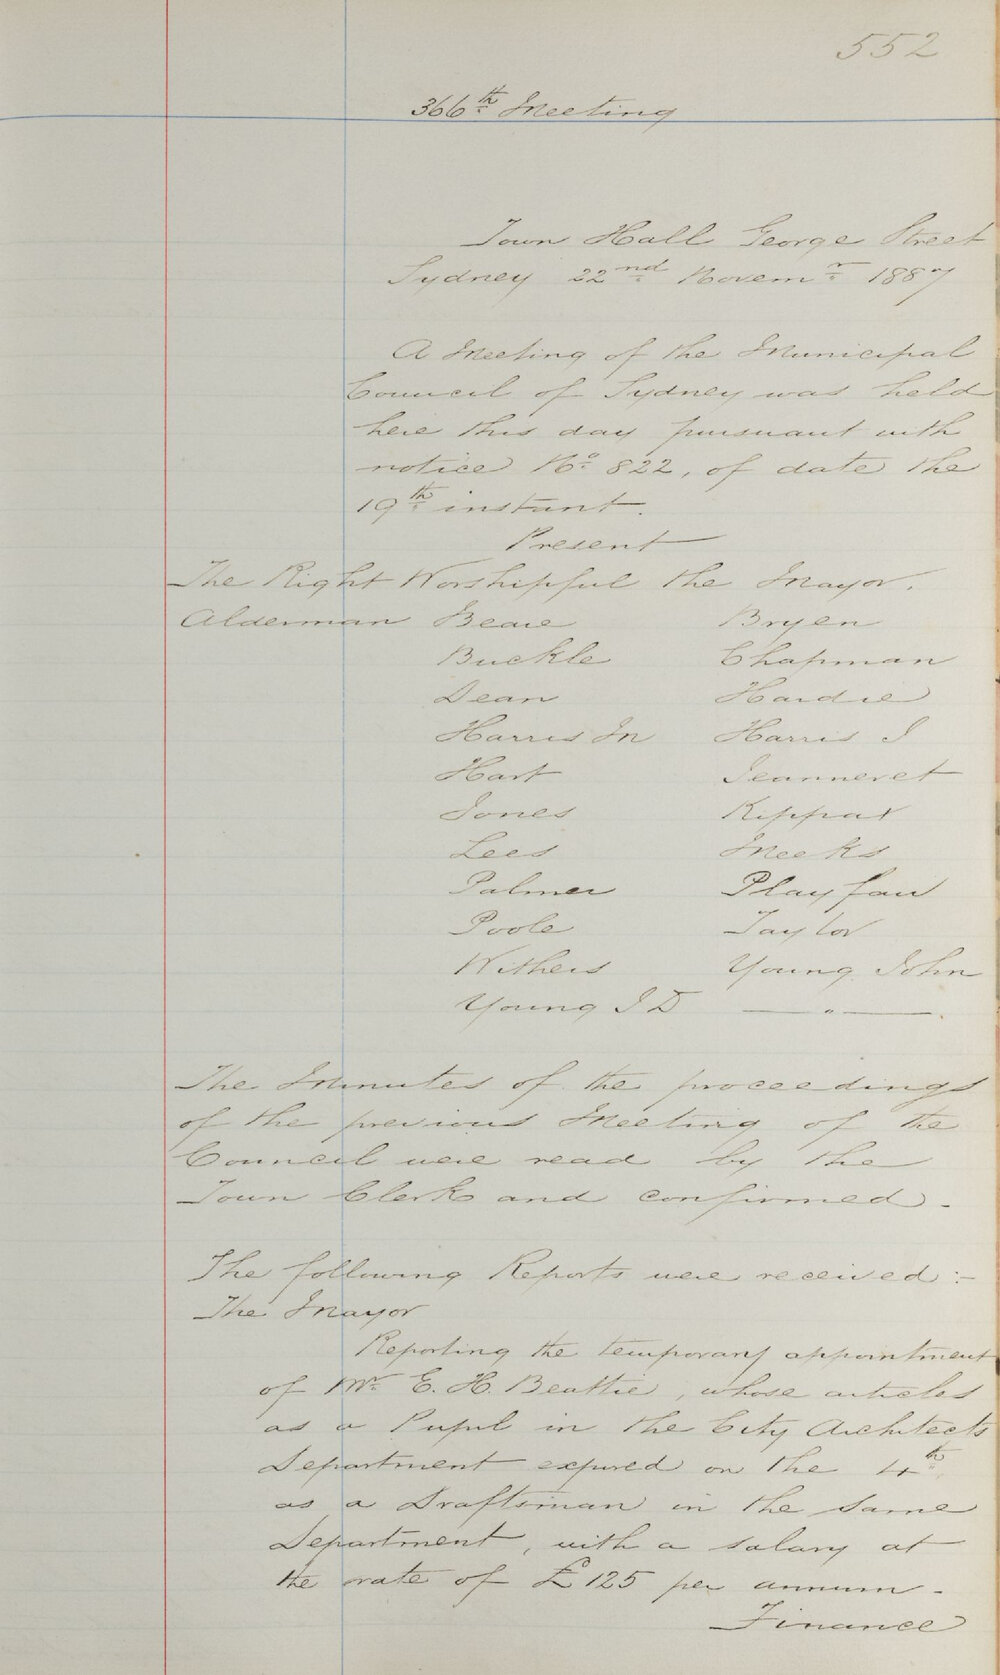 552
366th Meeting
Town Hall George Street
Sydney 22nd Novemr 1887
A Meeting of the Municipal
Council of Sydney was held
here this day pursuant with
notice No 822, of date the
19th instant.
Present
The Right Worshipful the Mayor.
Alderman Beare Bryen
Buckle Chapman
Dean Hardie
Harris Jn Harris J
Hart Jeanneret
Jones Kippax
Lees Meeks
Palmer Playfair
Poole Taylor
Withers Young John
Young J D — " —
The Minutes of the proceedings
of the previous Meeting of the
Council were read by the
Town Clerk and confirmed.
The following Reports were received:-
The Mayor
Reporting the temporary appointment
of Mr. E. H. Beattie, whose articles
as a Pupil in the City Architect's
Department expired on the 4th
as a Draftsman in the same
Department, with a salary at
the rate of £125 per annum.
Finance